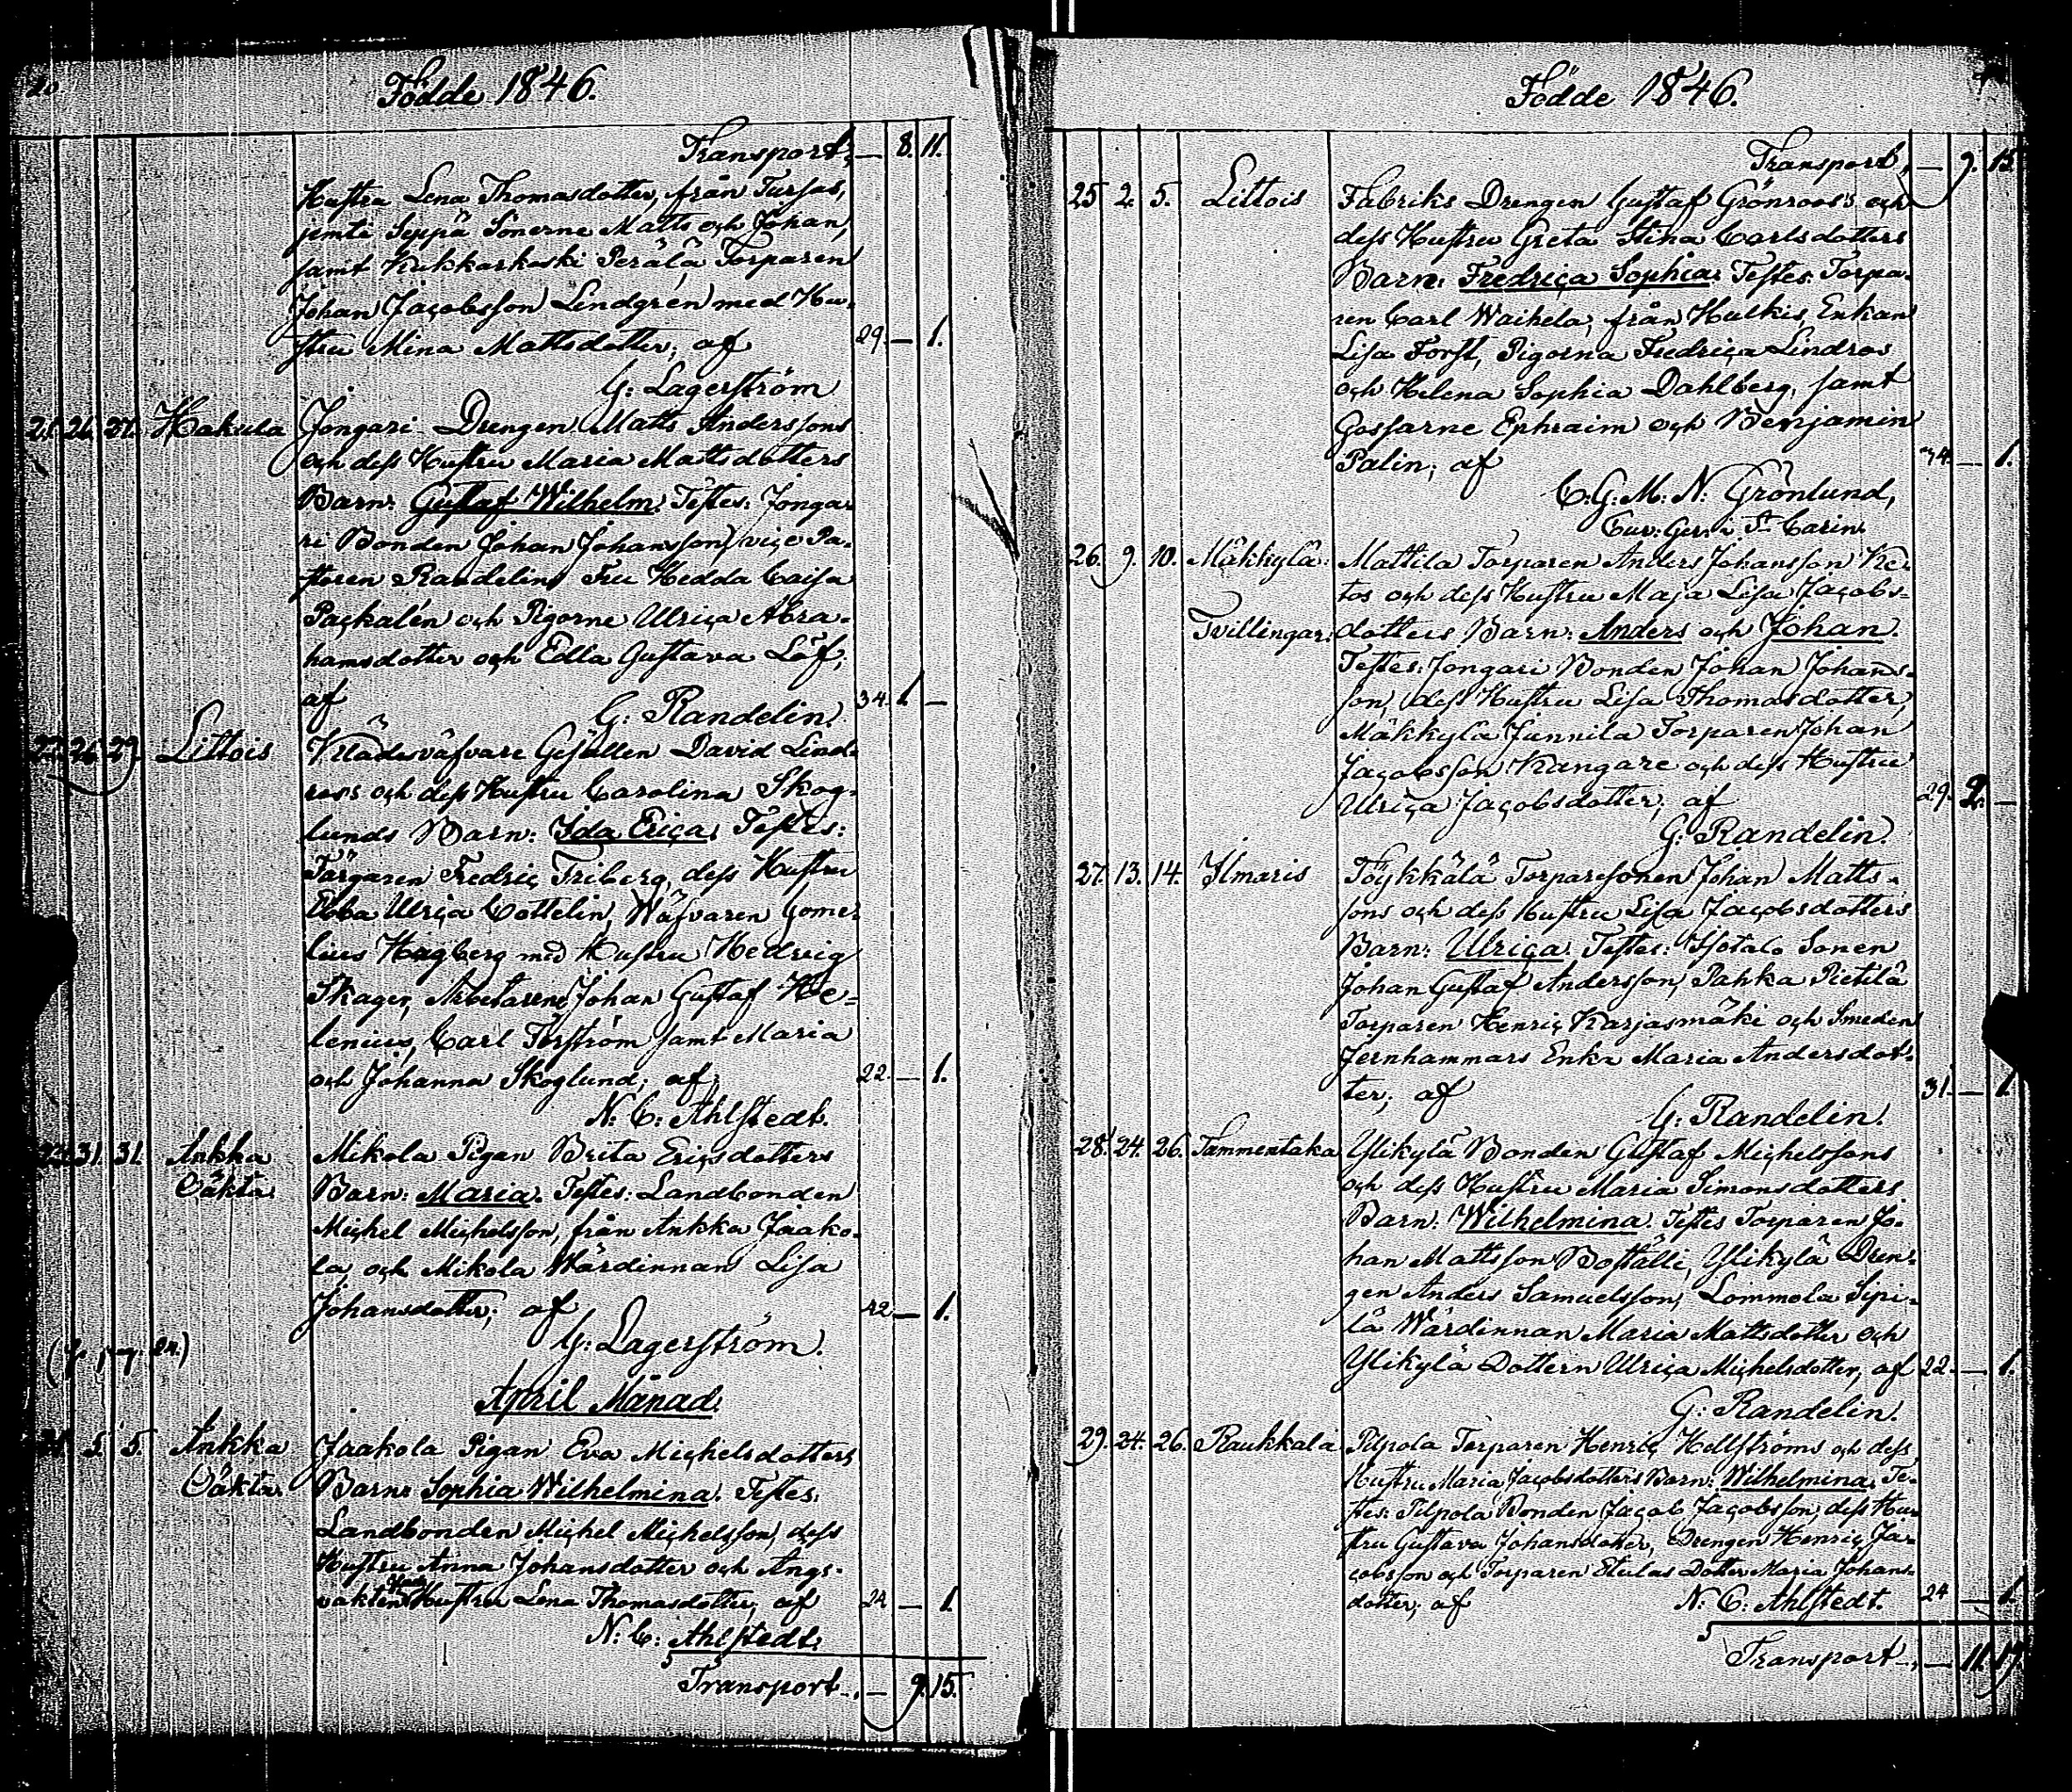 20
Födde 1846.
Transport, — 8. 11.
Hustru Lena Thomasdotter, från Tursas,
jemte Seppä Sönerne Matts och Johan,
samt Kukkarkoski Perälä Torparen
Johan Jacobsson Lindgrén med Hu-
stru Mina Mattsdotter, af 29. — 1.
G: Lagerström
26. 27. Hakula Jongari Drengen Matts Anderssons
och dess Hustru Maria Mattsdotters
Barn: Gustaf Wilhelm. Testes: Jonga-
ri Bonden Johan Johansson, vice Pa-
storen Randelins Fru Hedda Caisa
Packalén och Pigorne Ulrica Abra-
hamsdotter och Edla Gustava Löf,
af 34. 1. —
G: Randelin.
26. 29. Littois Klädesväfvare Gesällen David Lind-
roos och dess Hustru Carolina Skog-
lunds Barn: Ida Erica. Testes:
Färgaren Fredric Friberg, dess Hustru
Ebba Ulrica Cottelin, Wäfvaren Gome-
lius Hagberg med Hustru Hedvig
Skager, Arbetarene Johan Gustaf He-
lenius, Carl Forström samt Maria
och Johanna Skoglund; af 22. — 1.
N: C: Ahlstedt.
31. 31. Ankka Mikola Pigan Brita Ericsdotters
Oäkta Barn: Maria. Testes: Landbonden
Michel Michelsson, från Ankka Jaako-
la och Mikola Wärdinnan Lisa
Johansdotter; af 42 — 1.
G: Lagerström.
April Månad.
5. 5. Ankka Jaakola Pigan Eva Michelsdotters
Oäkta. Barn: Sophia Wilhelmina. Testes:
Landbonden Michel Michelsson, dess
Hustru Anna Johansdotter och Ängs-
vakten Hustru Lena Thomasdotter, af 24 — 1.
N: C: Ahlstedt.
Transport — 9. 15.
Födde 1846.
Transport, — 9. 15.
25 2. 5. Littois Fabriks Drengen Gustaf Grönroos's och
dess Hustru Greta Stina Carlsdotters
Barn: Fredrica Sophia. Testes: Torpa-
ren Carl Waihela, från Hulkis, Enkan
Lisa Forst, Pigorna Fredrica Lindros
och Helena Sophia Dahlberg, samt
Gossarne Ephraim och Benjamin
Palin; af 34. — 1.
C: G: M: N: Grönlund,
Cur: Ger: i St Carin.
26. 9. 10. Mäkkylä: Mattila Torparen Anders Johansson Ke-
tos och dess Hustru Maja Lisa Jacobs-
Tvillingar: dotters Barn: Anders och Johan.
Testes: Jongari Bonden Johan Johans-
son, dess Hustru Lisa Thomasdotter,
Mäkkylä Junnila Torparen Johan
Jacobsson Kangare och dess Hustru
Ulrica Jacobsdotter; af 29. 2. —
G: Randelin.
27. 13. 14. Ilmaris Töykkälä Torparesonen Johan Matts-
sons och dess Hustru Lisa Jacobsdotters
Barn: Ulrica. Testes: Isotalo Sonen
Johan Gustaf Andersson, Pahka Pietilä
Torparen Henric Karjasmäki och Smeden
Jernhammars Enka Maria Andersdot-
ter; af 31. — 1.
G: Randelin.
28. 24. 26. Tammentaka Ylikylä Bonden Gustaf Michelssons
och dess Hustru Maria Simonsdotters
Barn: Wilhelmina. Testes Torparen Jo-
han Mattsson Boställi, Ylikylä Dren-
gen Anders Samuelsson, Lommola Sipi-
lä Wärdinnan Maria Mattsdotter och
Ylikylä Dottern Ulrica Michelsdotter, af 22. — 1.
G: Randelin.
29. 24. 26. Raukkala Pilpola Torparen Henric Hellströms och dess
Hustru Maria Jacobsdotters Barn: Wilhelmina. Te-
stes: Pilpola Bonden Jacob Jacobsson, dess Hu-
stru Gustava Johansdotter, Drengen Henric Ja-
cobsson och Torparen Dotter Maria Johans-
dotter; af 24 — 1.
N: C: Ahlstedt.
Transport — 11. 17